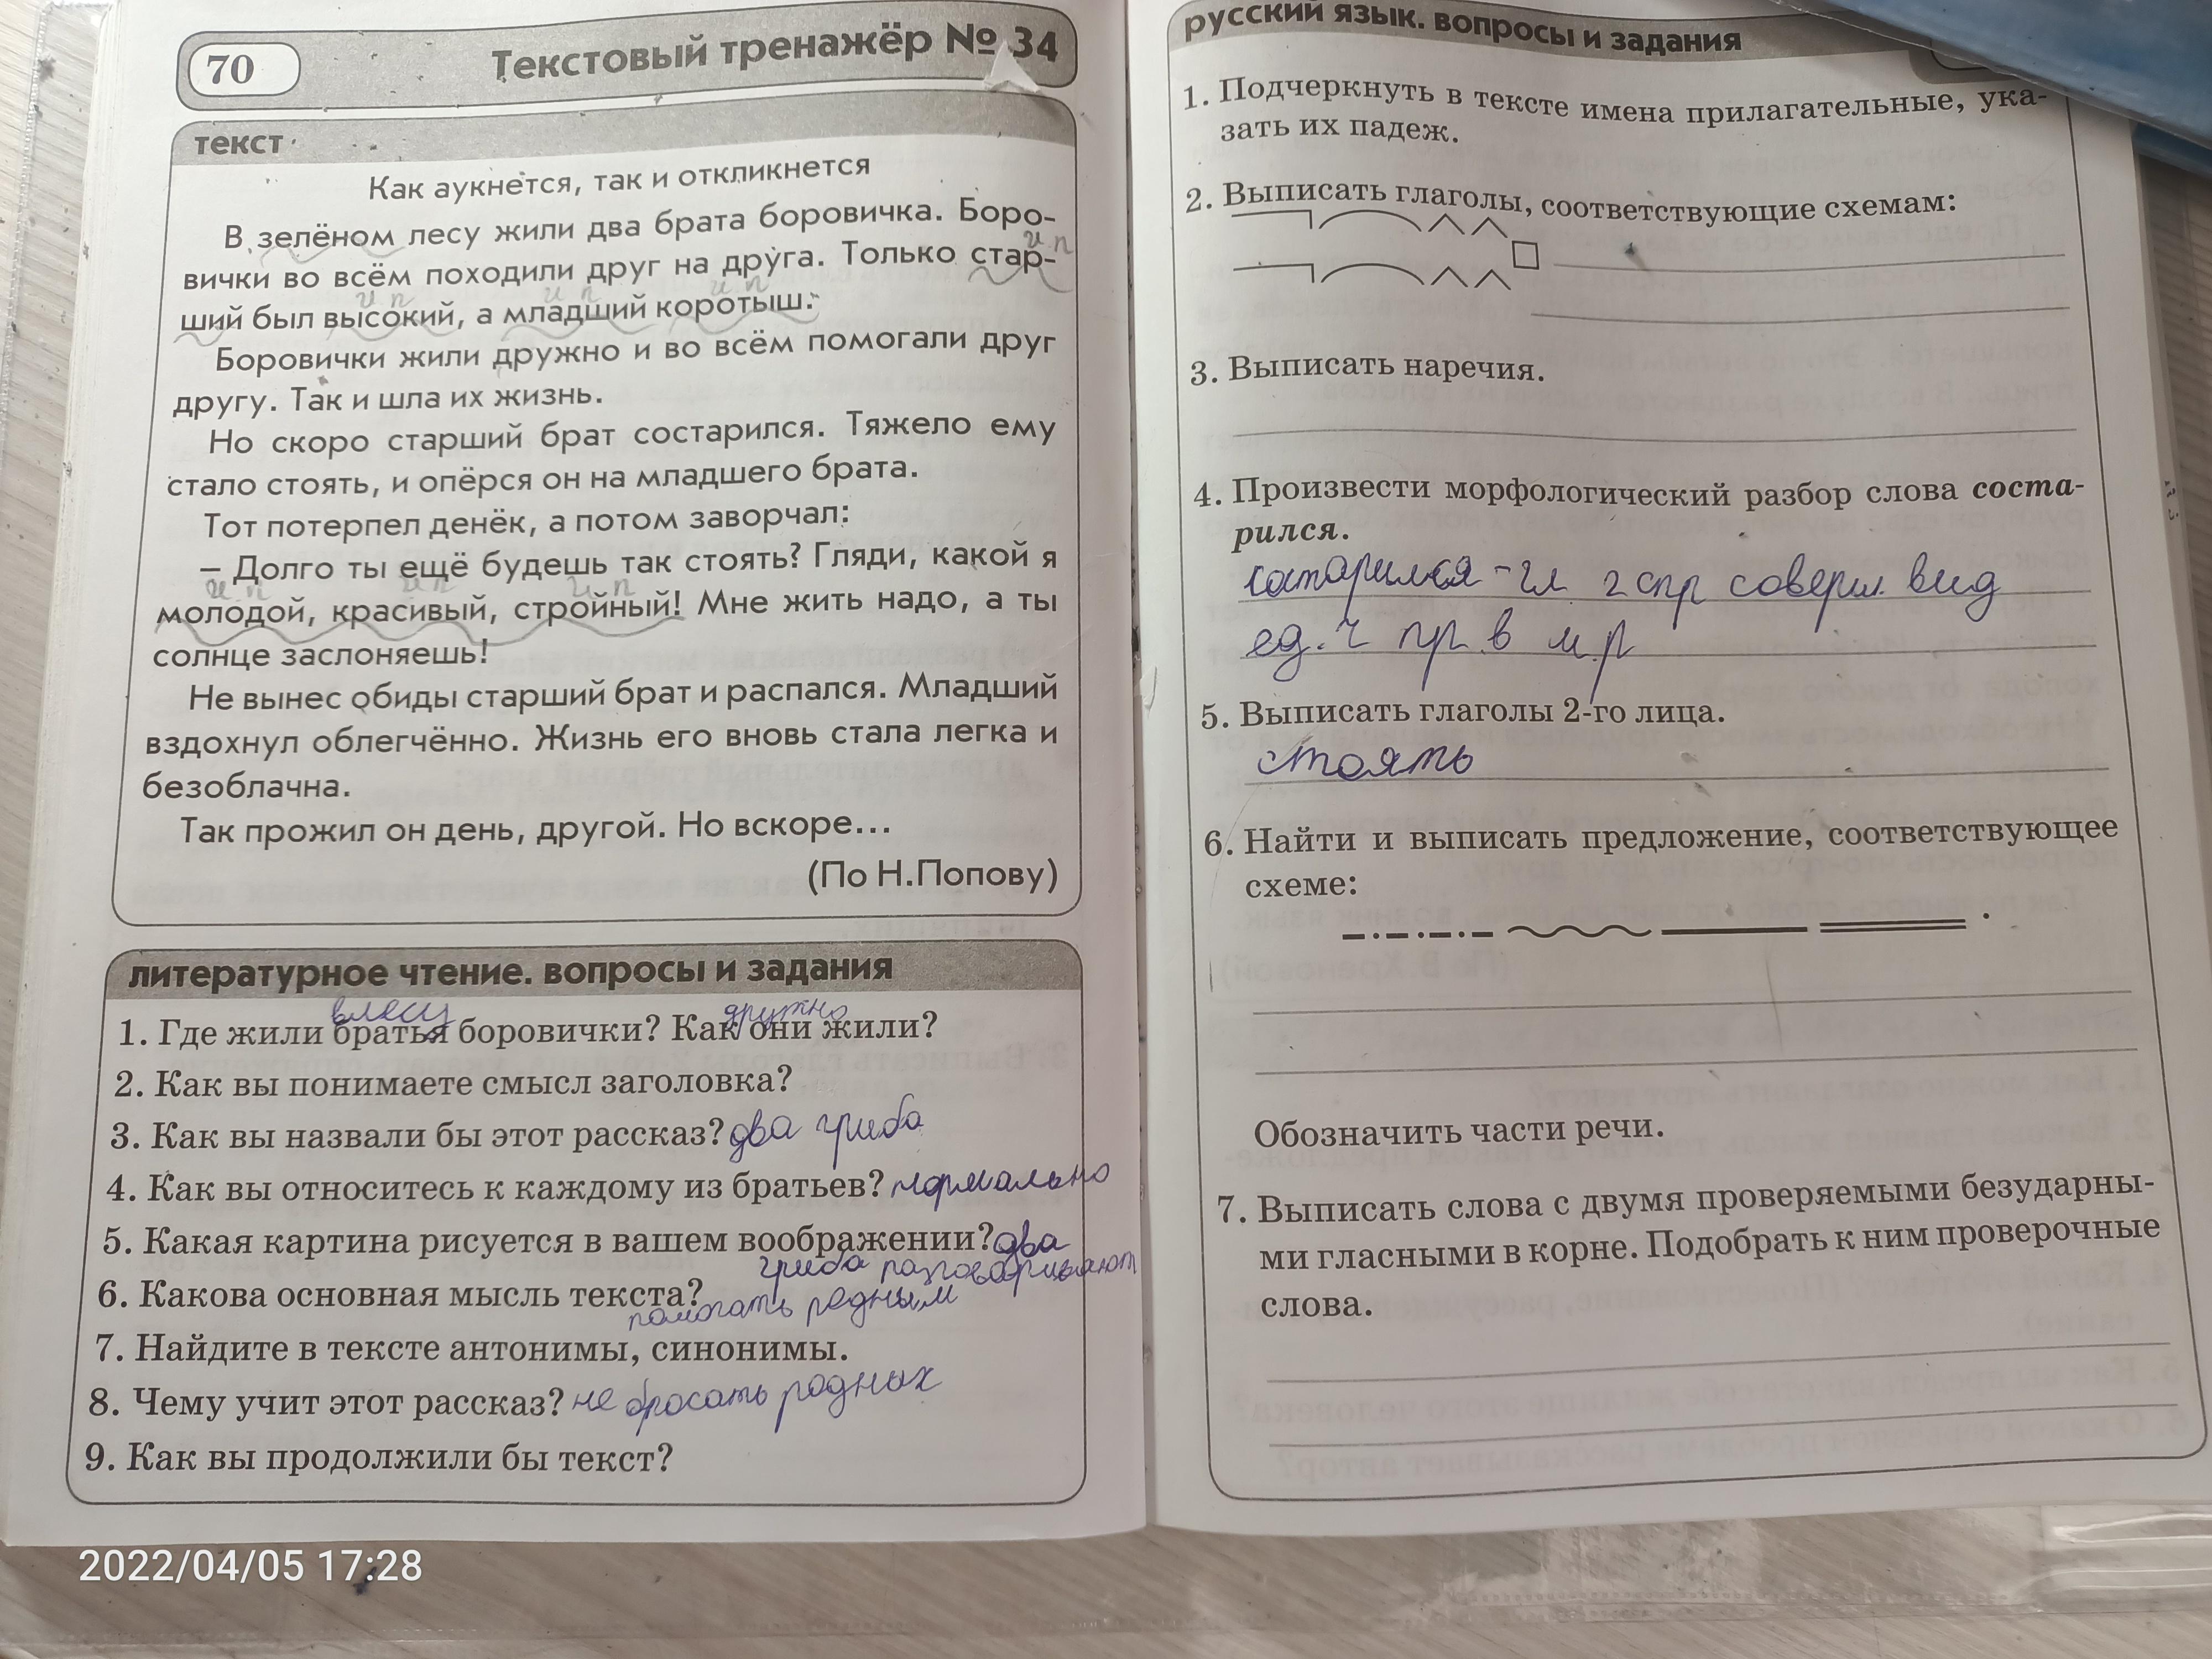 70
Текстовый тренажёр № 34
текст
Как аукнется, так и откликнется
В зелёном лесу жили два брата боровичка. Боро-
и п
вички во всём походили друг на друга. Только стар-
и п и п и п
ший был высокий, а младший коротыш.
Боровички жили дружно и во всём помогали друг
другу. Так и шла их жизнь.
Но скоро старший брат состарился. Тяжело ему
стало стоять, и опёрся он на младшего брата.
Тот потерпел денёк, а потом заворчал:
– Долго ты ещё будешь так стоять? Гляди, какой я
и п и п и п
молодой, красивый, стройный! Мне жить надо, а ты
солнце заслоняешь!
Не вынес обиды старший брат и распался. Младший
вздохнул облегчённо. Жизнь его вновь стала легка и
безоблачна.
Так прожил он день, другой. Но вскоре...
(По Н.Попову)
литературное чтение. вопросы и задания
влесу дружно
1. Где жили братья боровички? Как они жили?
2. Как вы понимаете смысл заголовка?
3. Как вы назвали бы этот рассказ? два гриба
4. Как вы относитесь к каждому из братьев? нормально
5. Какая картина рисуется в вашем воображении? два
гриба разговаривают
6. Какова основная мысль текста?
помогать родным
7. Найдите в тексте антонимы, синонимы.
8. Чему учит этот рассказ? не бросать родных
9. Как вы продолжили бы текст?
русский язык. вопросы и задания
1. Подчеркнуть в тексте имена прилагательные, ука-
зать их падеж.
2. Выписать глаголы, соответствующие схемам:
3. Выписать наречия.
4. Произвести морфологический разбор слова соста-
рился.
состарился - гл 2 спр соверш. вид
ед. ч пр. в м.р
5. Выписать глаголы 2-го лица.
стоять
6. Найти и выписать предложение, соответствующее
схеме:
Обозначить части речи.
7. Выписать слова с двумя проверяемыми безударны-
ми гласными в корне. Подобрать к ним проверочные
слова.
2022/04/05 17:28